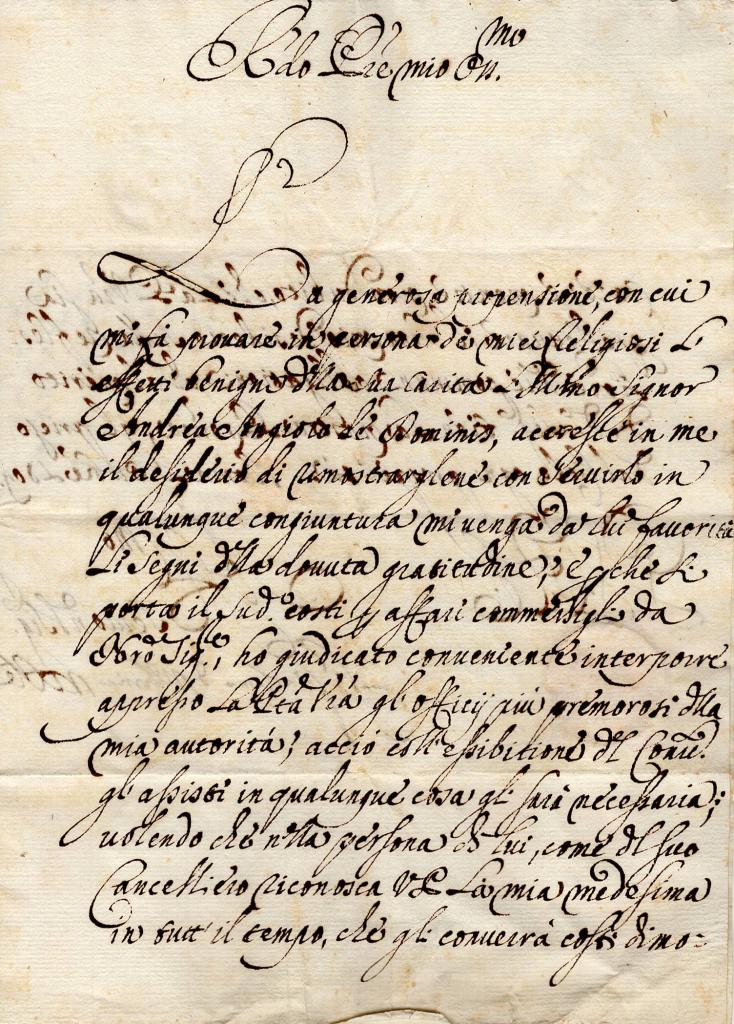 Rdo Pre mio Oss.mo
La generosa propensione, con cui
mi fà provare in persona de miei Religiosi L'
effetti benigni dlla sua Carità L'Ill.mo Signor
Andrea Angiolo de Dominis, accresce in me
il desiderio di rimostrarglene con servirlo in
qualunque congiuntura mi venga da lui favorita
Li segni dlla dovuta gratitudine; e pche si
porta il sud.o costi p affari commessigli da
Nro Sig.re, ho giudicato conveniente interporre
appresso La Ptà Vrà gl' officij più premorosi dlla
mia autorità; acciò coll' essibitione dl Conv.
gl' assisti in qualunque cosa gl' sarà necessaria;
volendo che nlla persona di lui, come dl suo
Cancelliero riconosca VP La mia medesima
in tutt' il tempo, che gl' converrà costi dimo=